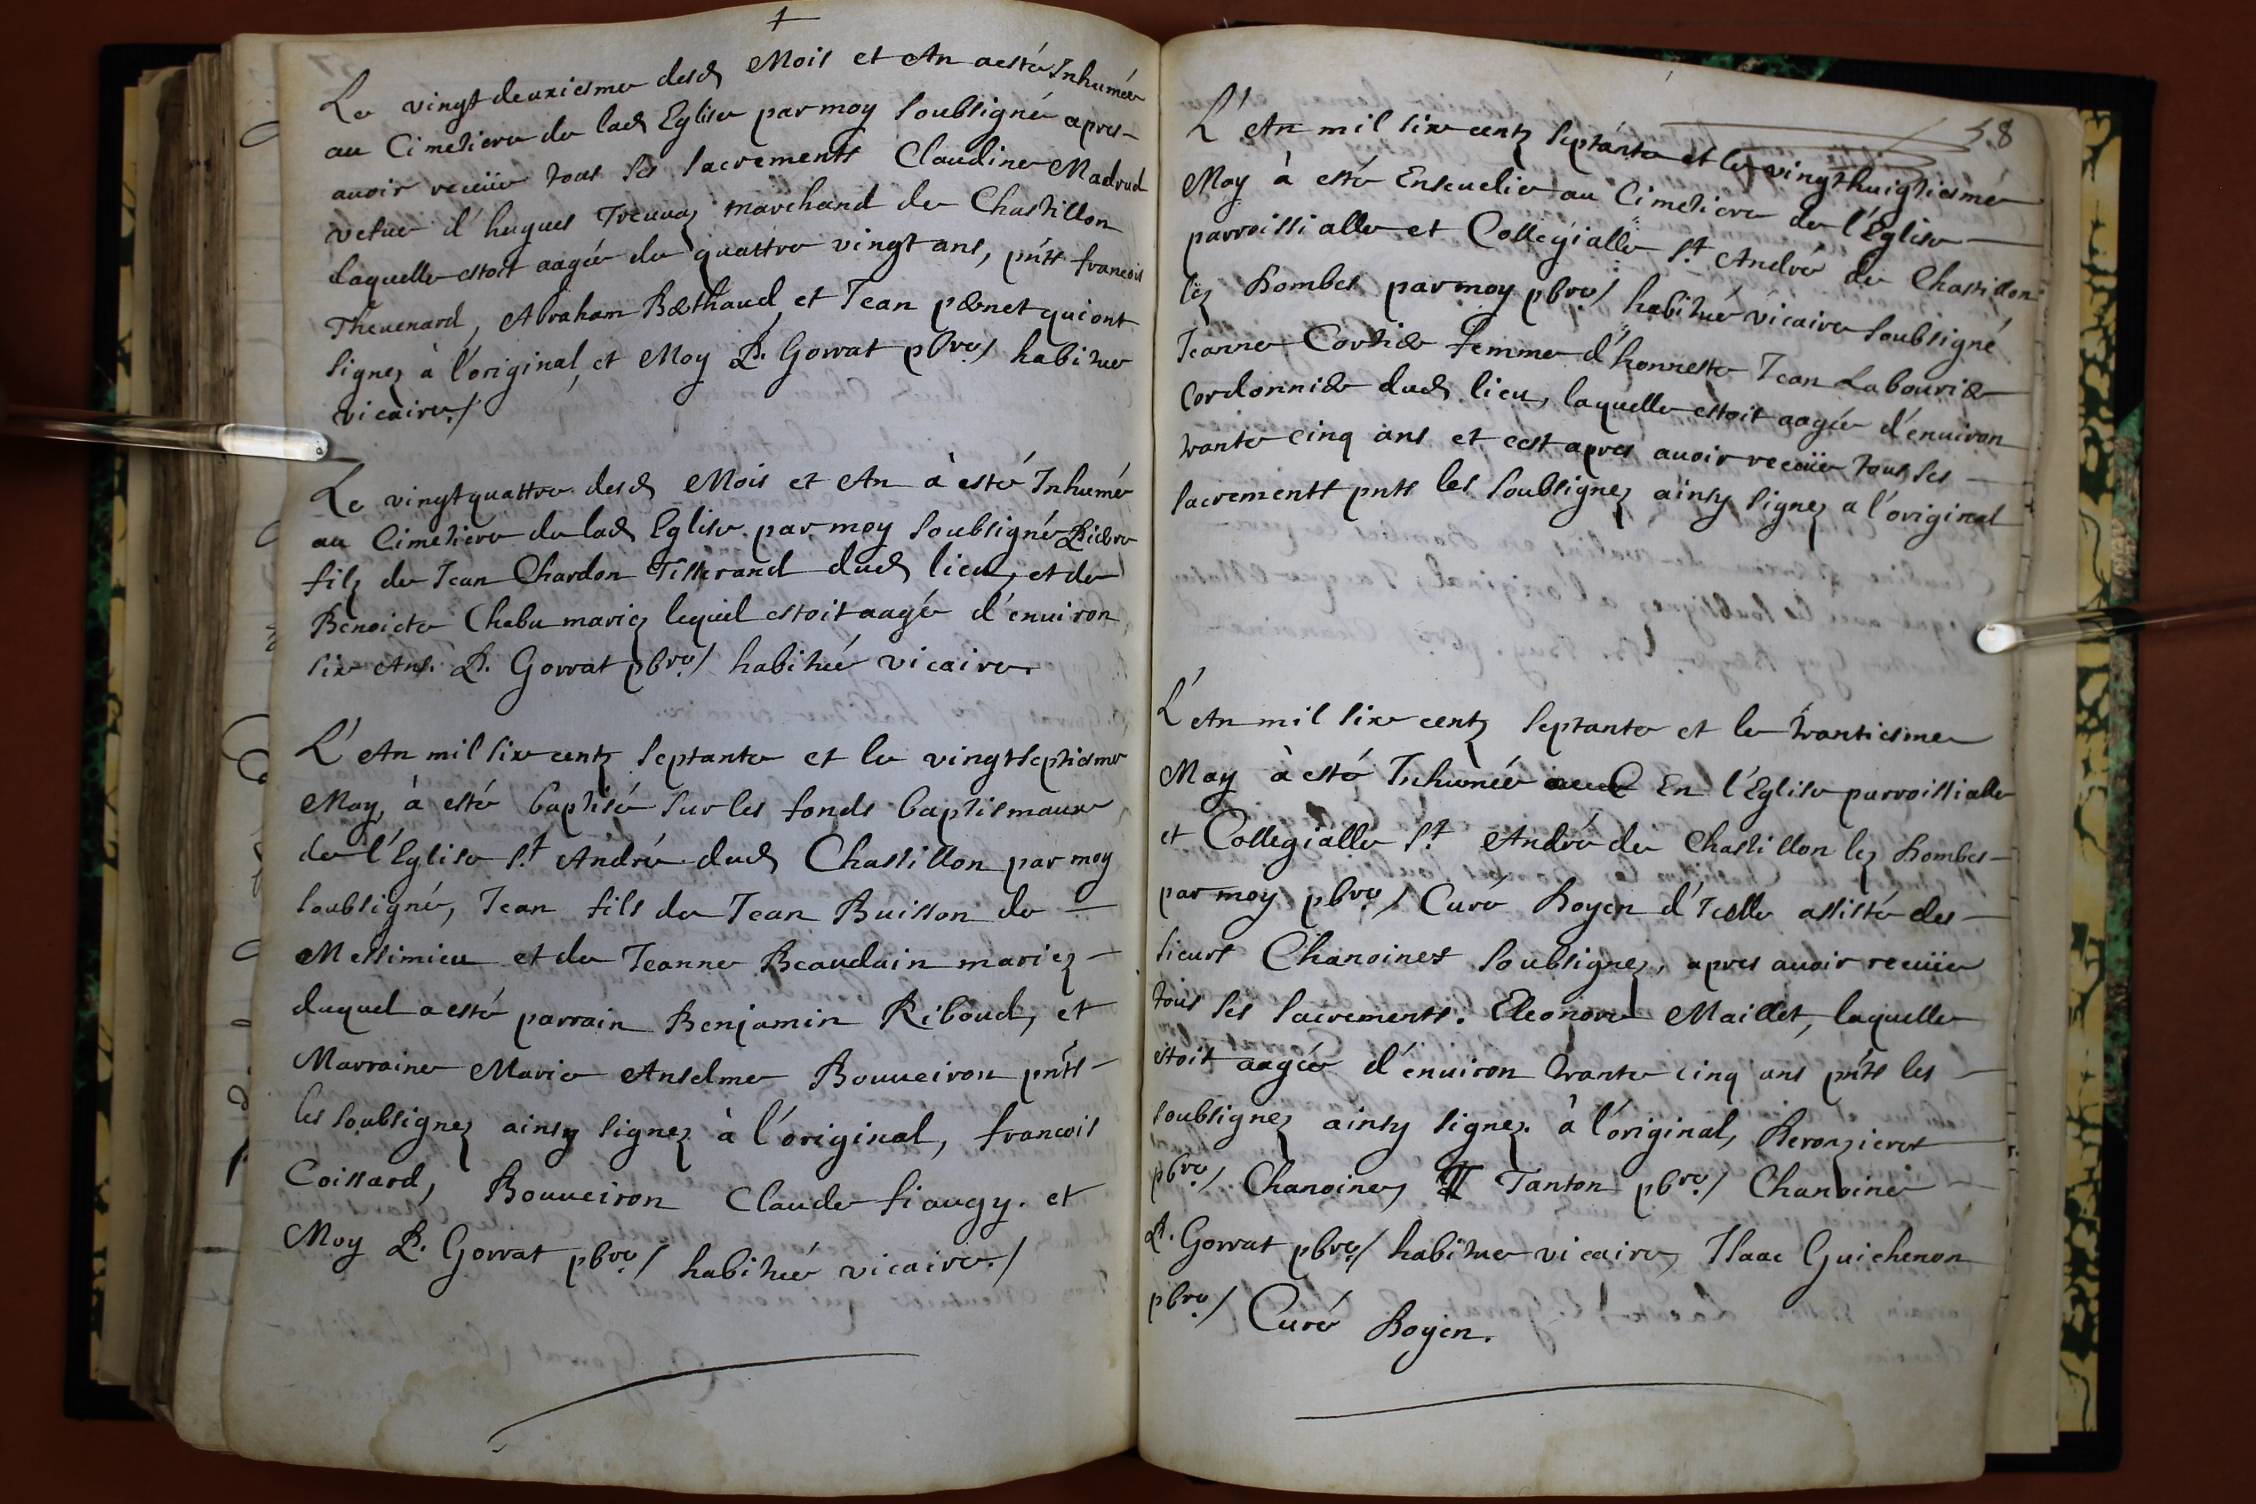 Le vingt deuxiesme desd Mois et An a esté Inhumée
au Cimetiere de lad Eglise par moy soubsigné apres
avoir receüe tous ses sacrements Claudine Madrud
vefue d'hugues Treuuaz marchand de Chastillon
laquelle estoit aagée de quattre vingt ans, pnts francois
Theuenard, Abraham Bothaud, et Jean pernet qui ont
signez à l'original, et Moy P. Gorrat pbre / habitue
vicaire /
Le vingtquattre desd Mois et An à esté Inhumé
au Cimetiere de lad Eglise par moy soubsigné Pierre
filz de Jean Chardon Tisserand dud lieu, et de
Benoicte Chabu mariez lequel estoit aagé d'enuiron
six Ans. P. Gorrat pbre / habitué vicaire.
L'An mil six centz septante et le vingtseptiesme
May, à esté baptisé sur les fonds baptismaux
de l'Eglise St André dud Chastillon par moy
soubsigné, Jean fils de Jean Buisson de
Messimieu et de Jeanne Beaudain mariez
duquel a esté parrain Benjamin Riboud, et
Marraine Marie Anselme Bouueiron pnts
les soubsignez ainsy signez à l'original, francois
Coissard, Bouueiron Claude fiaugy. et
Moy P. Gorrat pbre / habitué vicaire. /
58
L'An mil six centz septante et le vingthuigtiesme
May à esté Enseuelie au Cimetiere de l'Eglise
parroissialle et Collegialle St André de Chastillon
lez Dombes par moy pbre / habitué vicaire soubsigné
Jeanne Cordier femme d'honneste Jean Labourier
Cordonnier dud lieu, laquelle estoit aagée d'enuiron
trante cinq ans et cest apres auoir receüe tous ses
sacrements pnts les soubsignez ainsy signez a l'original
L'An mil six centz septante et le trantiesme
May à esté Inhumée En l'Eglise parroissialle
et Collegialle St André de Chastillon lez Dombes
par moy pbre / Curé Doyen d'Icelle assisté des
sieurs Chanoines soubsignez, apres auoir receüe
tous ses sacrements. Eleonore Maillet, laquelle
estoit aagée d'enuiron trante cinq ans pnts les
soubsignez ainsy signez. à l'original, Deronzieres
pbre / Chanoine, Tanton pbre / Chanoine
P. Gorrat pbre / habitue vicaire, Isaac Guichenon
pbre / Curé Doyen.